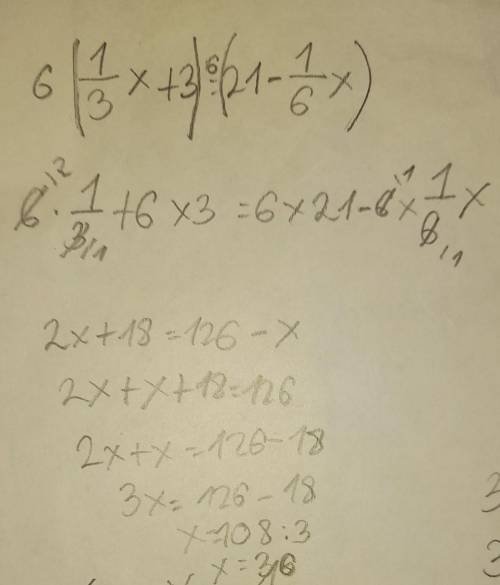 6(1/3 x+3)6=(21-1/6 x)
6/2 · 1/3/1 +6×3=6×21-6/1×1/6/1 x
2x+18=126-x
2x+x+18=126
2x+x=126-18
3x=126-18
x=108:3
x=36